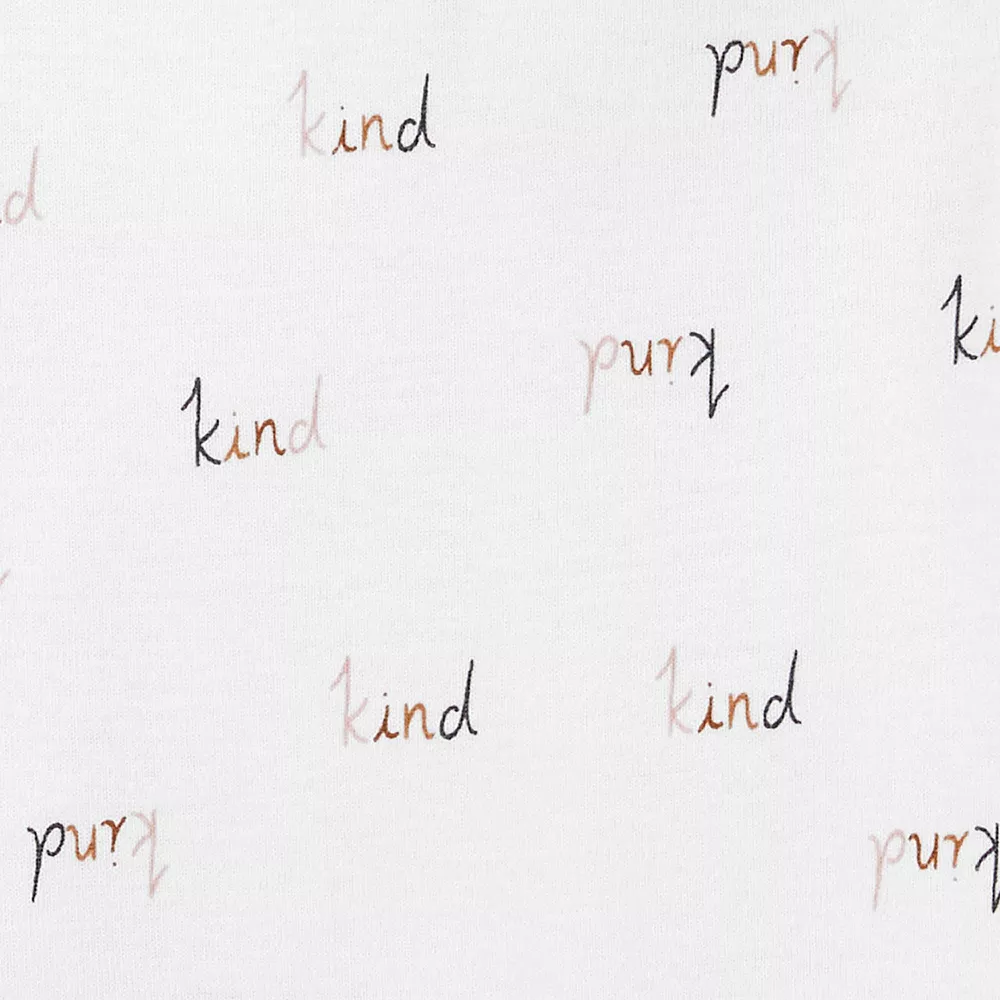 kind
kind
d
ki
kind
kind
kind
kind
kind
kind